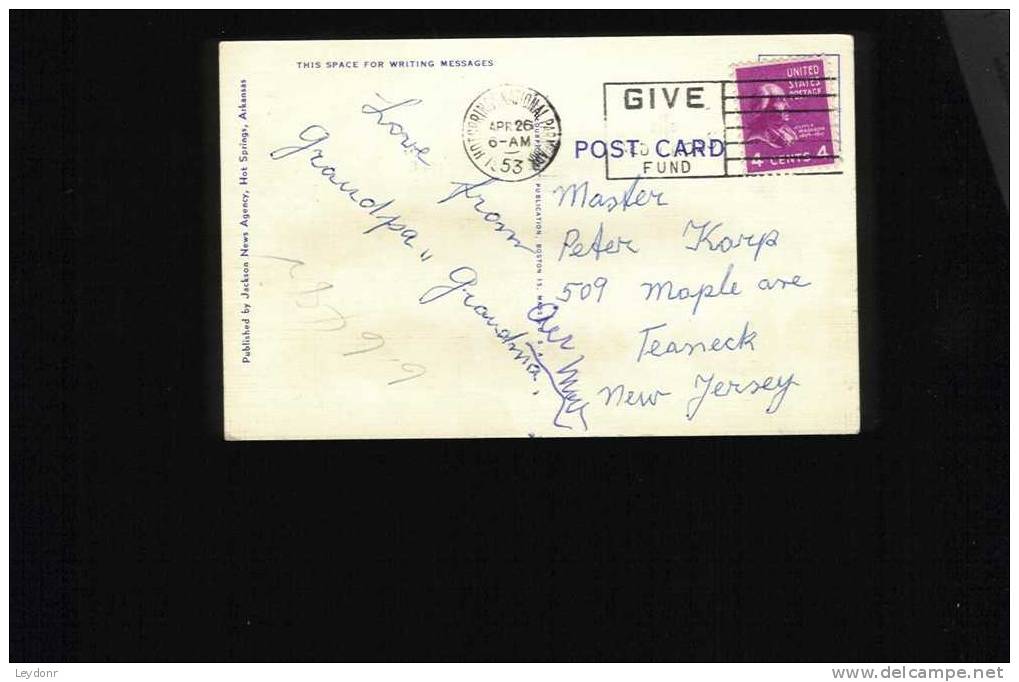 THIS SPACE FOR WRITING MESSAGES
Published by Jackson News Agency, Hot Springs, Arkansas
Love
from
Grandpa,,
Grandma.
APR 26
6-AM
53
GIVE
FUND
UNITED
STATES
POSTAGE
4 CENTS 4
POST CARD
PUBLICATION, BOSTON 15,
Master
Peter Karp
509 Maple ave
Teaneck
New Jersey
Leydonr
http://www.delcampe.net